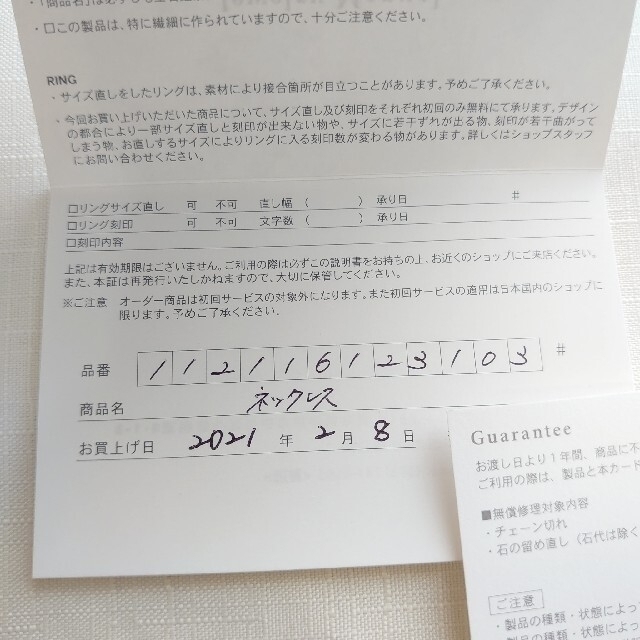 ・「商品名」は必ず
・□この製品は、特に繊細に作られていますので、十分ご注意ください。
RING
・サイズ直しをしたリングは、素材により接合箇所が目立つことがあります。予めご了承ください。
・今回お買い上げいただいた商品について、サイズ直し及び刻印をそれぞれ初回のみ無料にて承ります。デザイン
の都合により一部サイズ直しと刻印が出来ない物や、サイズに若干ずれが出る物、刻印が若干曲がって
しまう物、お直しするサイズによりリングに入る刻印数が変わる物があります。詳しくはショップスタッフ
にお問い合わせください。
□リングサイズ直し 可 不可 直し幅 ( ) 承り日 #
□リング刻印 可 不可 文字数 ( ) 承り日
□刻印内容
上記は有効期限はございません。ご利用の際は必ずこの説明書をお持ちの上、お近くのショップにご来店ください。
また、本証は再発行いたしかねますので、大切に保管してください。
※ご注意 オーダー商品は初回サービスの対象外になります。また初回サービスの適用は日本国内のショップに
限ります。予めご了承ください。
品番 112116123103 #
商品名 ネックレス
お買上げ日 2021 年 2 月 8 日
Guarantee
お渡し日より1年間、商品に不
ご利用の際は、製品と本カード
■無償修理対象内容
・チェーン切れ
・石の留め直し(石代は除く
ご注意
・製品の種類・状態によっ
・製品の種類・状態によっ